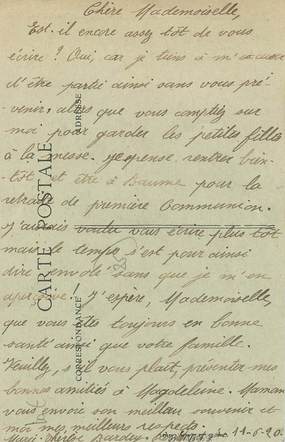 Chère Mademoiselle,
Est-il encore assez tôt de vous
écrire ? Oui, car je tiens à m'excuser
d'être partie ainsi sans vous pré-
venir, alors que vous comptiez sur
moi pour garder les petites filles
à la messe. Je pense rentrer bien-
tôt et être à Baume pour la
retraite de première Communion.
J'aurais voulu vous écrire plus tôt
mais le temps s'est pour ainsi
dire envolé sans que je m'en
aperçoive ! J'espère, Mademoiselle,
que vous êtes toujours en bonne
santé ainsi que votre famille.
Veuillez, s'il vous plaît, présenter mes
bonnes amitiés à Magdeleine. Maman
vous envoie son meilleur souvenir et
moi mes meilleurs respects.
11-6-20.
CARTE POSTALE
ADRESSE
CORRESPONDANCE